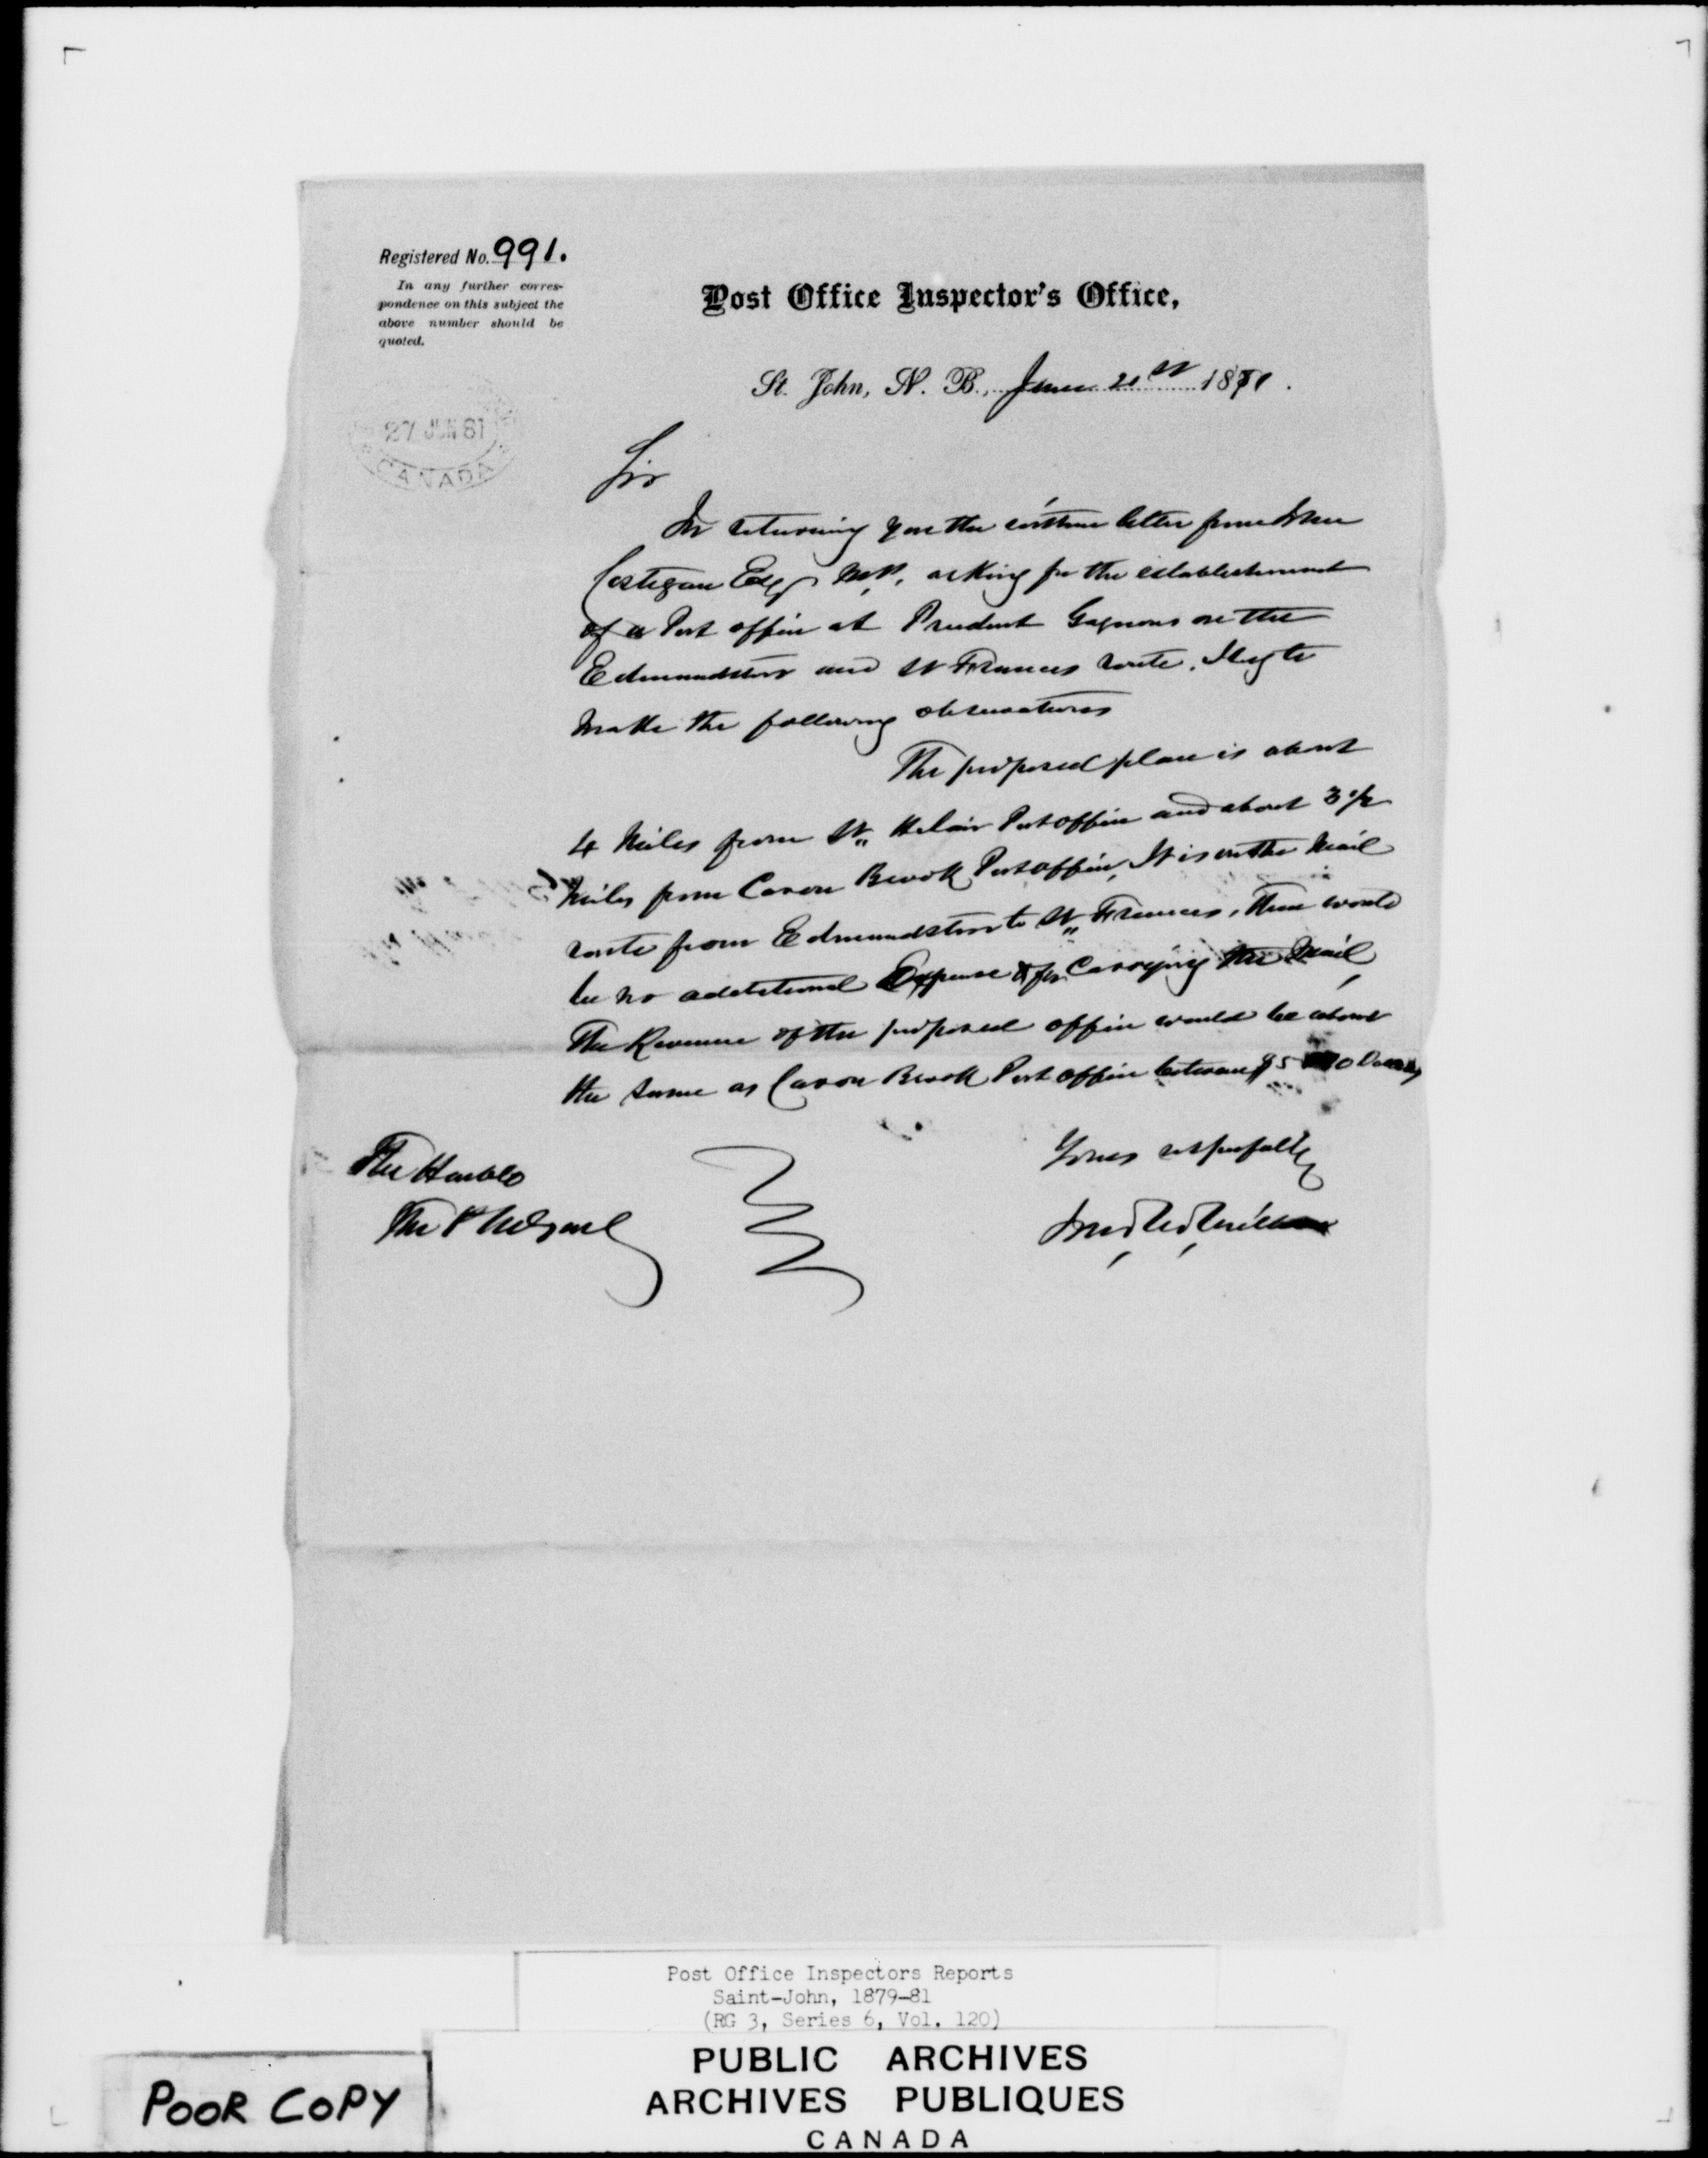 Registered No. 991.
In any further corres-
pondence on this subject the
above number should be
quoted.
Post Office Inspector's Office,
St. John, N. B., June 21st 1881.
27 JUN 81
CANADA
Sir
In returning you the within letter from John
Costigan Esq MP, asking for the establishment
of a Post office at Prudent Gagnons on the
Edmundston and St Frances route. I beg to
make the following observations
The proposed place is about
4 Miles from St. Helair Post office and about 3 1/2
Miles from Caron Brook Post office, It is on the Mail
route from Edmundston to St. Frances, there would
be no additional Expense for Carrying the Mail,
The Revenue of the proposed office would be about
the same as Caron Brook Post office between $5 10 Dollars
Yours respectfully
The Honble
The P M General
Post Office Inspectors Reports
Saint-John, 1879-81
(RG 3, Series 6, Vol. 120)
PUBLIC ARCHIVES
ARCHIVES PUBLIQUES
CANADA
POOR COPY